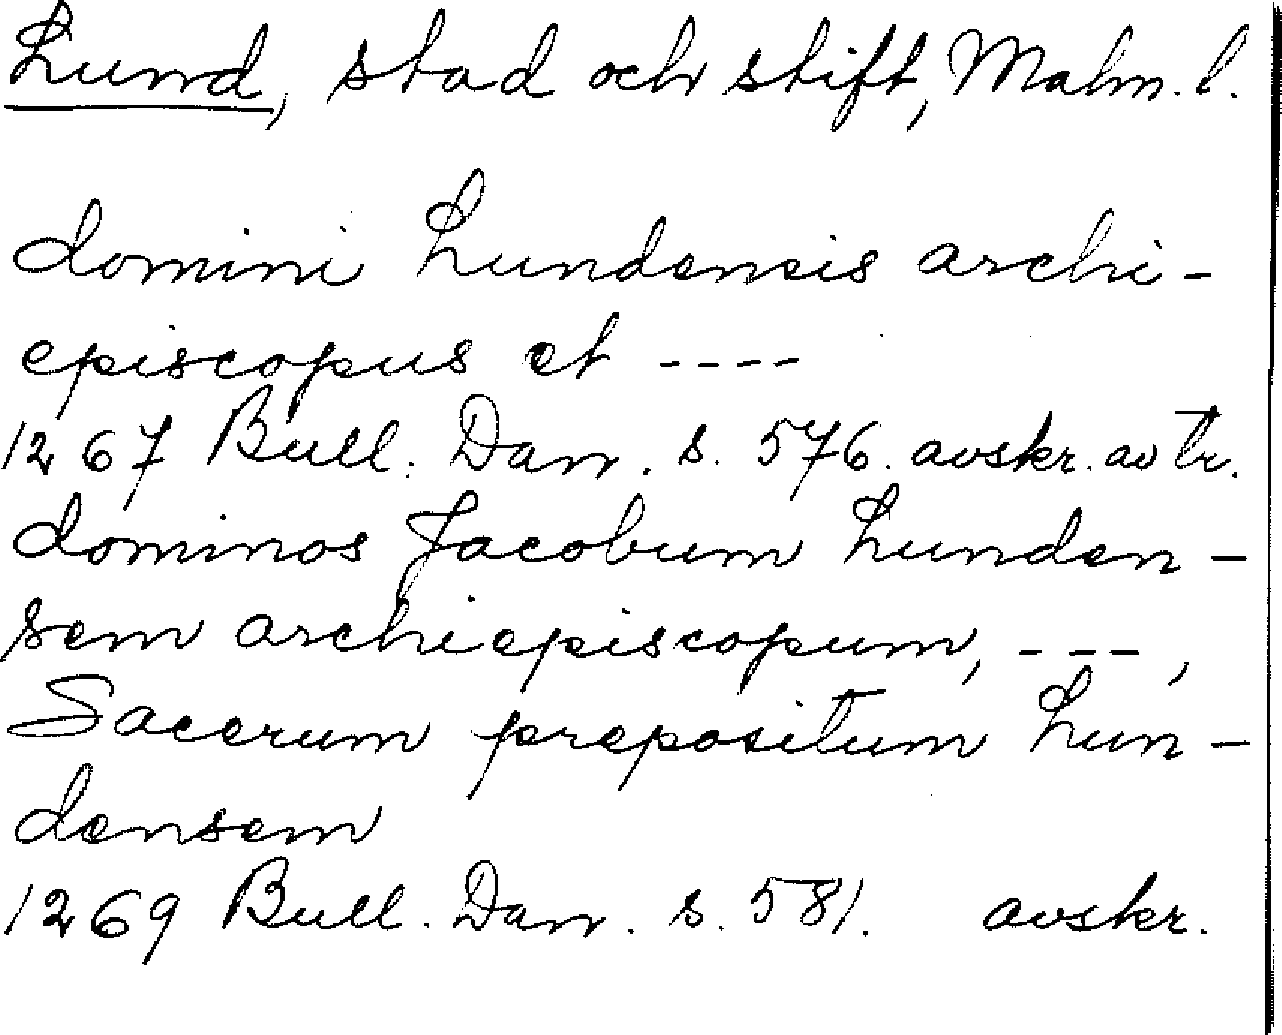 Lund, stad och stift, Malm. l.
domini Lundensis archi-
episcopus et ----
1267 Bull. Dan. s. 576. avskr. av tr.
dominos Jacobum Lunden-
sem archiepiscopum, ---,
Sacerum prepositum Lun-
densem
1269 Bull. Dan. s. 581. avskr.